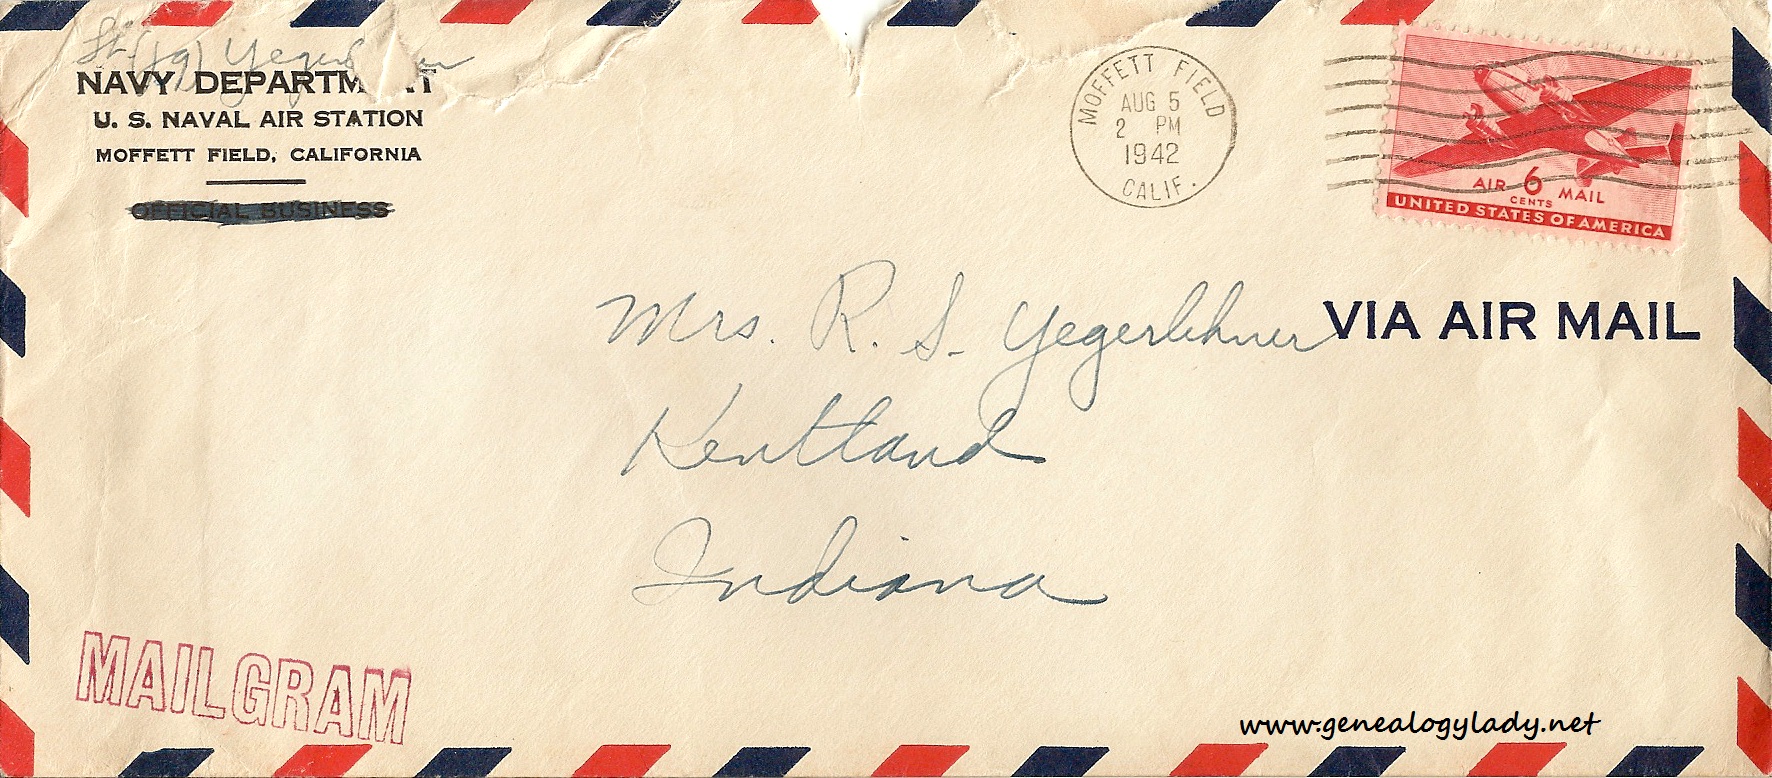 Lt. (jg) Yeger
NAVY DEPARTMENT
U. S. NAVAL AIR STATION
MOFFETT FIELD, CALIFORNIA
OFFICIAL BUSINESS
MOFFETT FIELD
AUG 5
2 PM
1942
CALIF.
AIR 6 MAIL
CENTS
UNITED STATES OF AMERICA
Mrs. R. S. Yegerlehner
VIA AIR MAIL
Kentland
Indiana
MAILGRAM
www.genealogylady.net